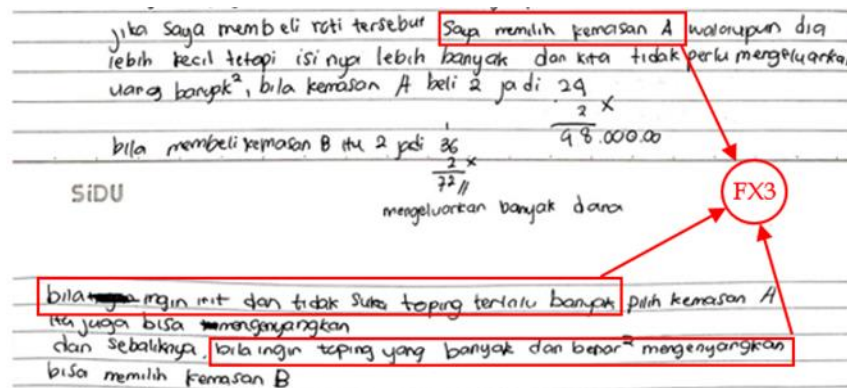 jika saya membeli roti tersebut saya memilih kemasan A walaupun dia
lebih kecil tetapi isi nya lebih banyak dan kita tidak perlu mengeluarkan
uang banyak², bila kemasan A beli 2 jadi 24
2 x
48.000.00
bila membeli kemasan B itu 2 jadi 36
1
2 x
72 //
SiDU
mengeluarkan banyak dana
FX3
bila ingin irit dan tidak suka toping terlalu banyak pilih kemasan A
itu juga bisa mengenyangkan
dan sebaliknya, bila ingin toping yang banyak dan benar² mengenyangkan
bisa memilih kemasan B